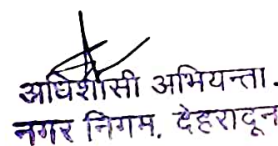 अधिशासी अभियन्ता.
नगर निगम, देहरादून